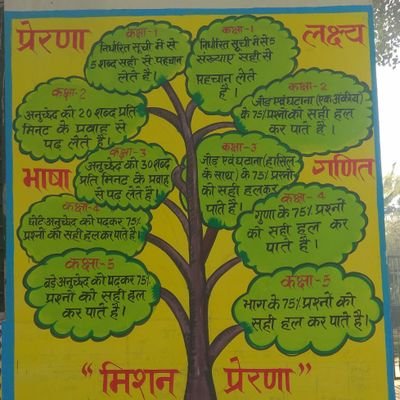 प्रेरणा
लक्ष्य
कक्षा-1
निर्धारित सूची में से
5 शब्द सही से पहचान
लेते है।
कक्षा-1
निर्धारित सूची में से 5
संख्याए सही से
पहचान लेते
है।
कक्षा-2
अनुच्छेद को 20 शब्द प्रति
मिनट के प्रवाह से
पढ़ लेते है।
कक्षा-2
जोड़ एवं घटाना (एक अंकीय)
के 75% प्रश्नो को सही हल
कर पाते है।
भाषा
गणित
कक्षा-3
अनुच्छेद को 30 शब्द
प्रति मिनट के प्रवाह
से पढ़ लेते है।
कक्षा-3
जोड़ एवं घटाना (हासिल
के साथ) के 75% प्रश्नों
को सही हल कर
पाते है।
कक्षा-4
छोटे अनुच्छेद को पढ़कर 75%
प्रश्नों को सही हल कर पाते है।
कक्षा-4
गुणा के 75% प्रश्नों
को सही हल कर
पाते है।
कक्षा-5
बड़े अनुच्छेद को पढ़कर 75%
प्रश्नों को सही हल
कर पाते है।
कक्षा-5
भाग के 75% प्रश्नों को
सही हल कर पाते है।
"मिशन प्रेरणा"